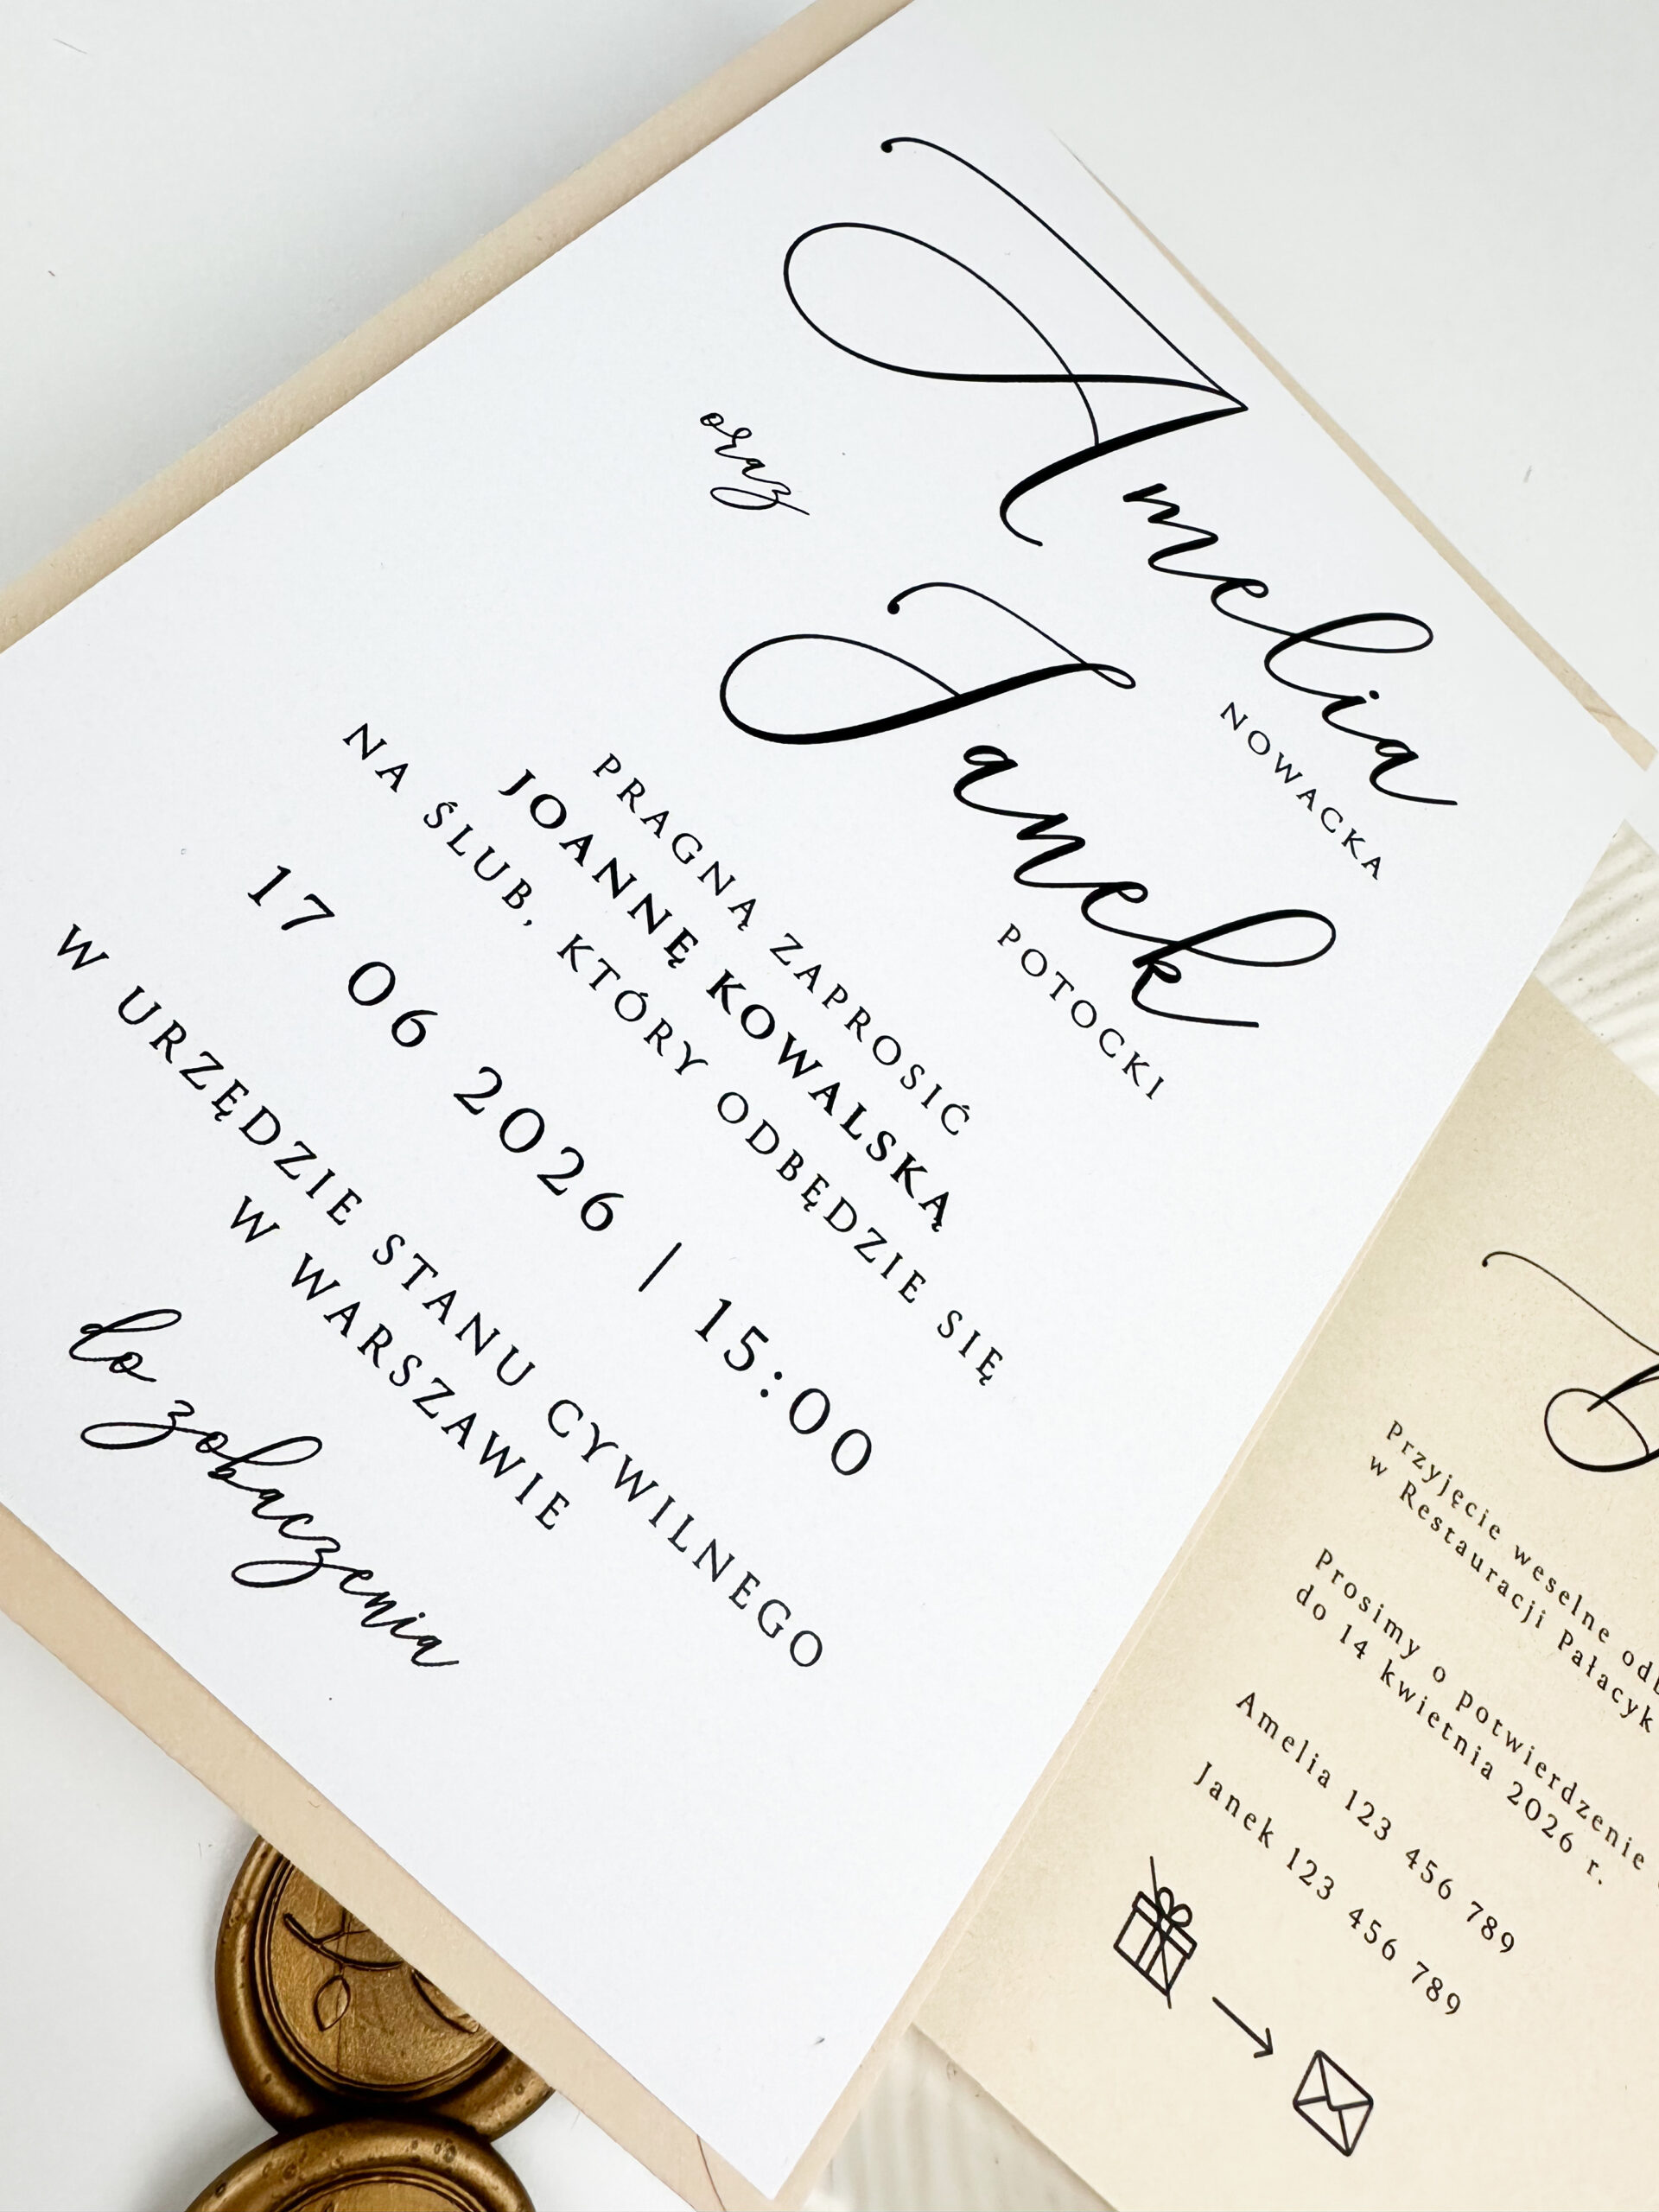 Amelia
NOWACKA
oraz
Janek
POTOCKI
PRAGNĄ ZAPROSIĆ
JOANNĘ KOWALSKĄ
NA ŚLUB, KTÓRY ODBĘDZIE SIĘ
17 06 2026 | 15:00
W URZĘDZIE STANU CYWILNEGO
W WARSZAWIE
do zobaczenia
Przyjęcie weselne
w Restauracji Pałacyk
Prosimy o potwierdzenie
do 14 kwietnia 2026 r.
Amelia 123 456 789
Janek 123 456 789